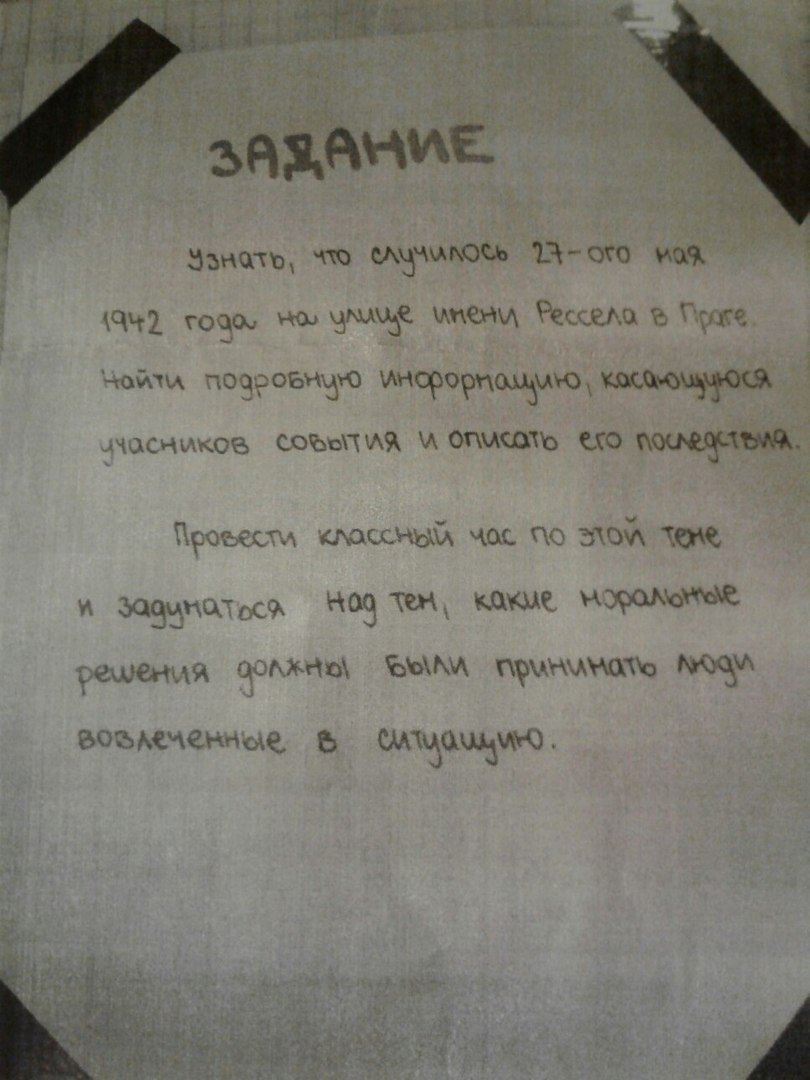 ЗАДАНИЕ
Узнать, что случилось 27-ого мая
1942 года на улице имени Рессела в Праге.
Найти подробную информацию, касающуюся
учасников события и описать его последствия.
Провести классный час по этой теме
и задуматься над тем, какие моральные
решения должны были принимать люди
возлеченные в ситуацию.